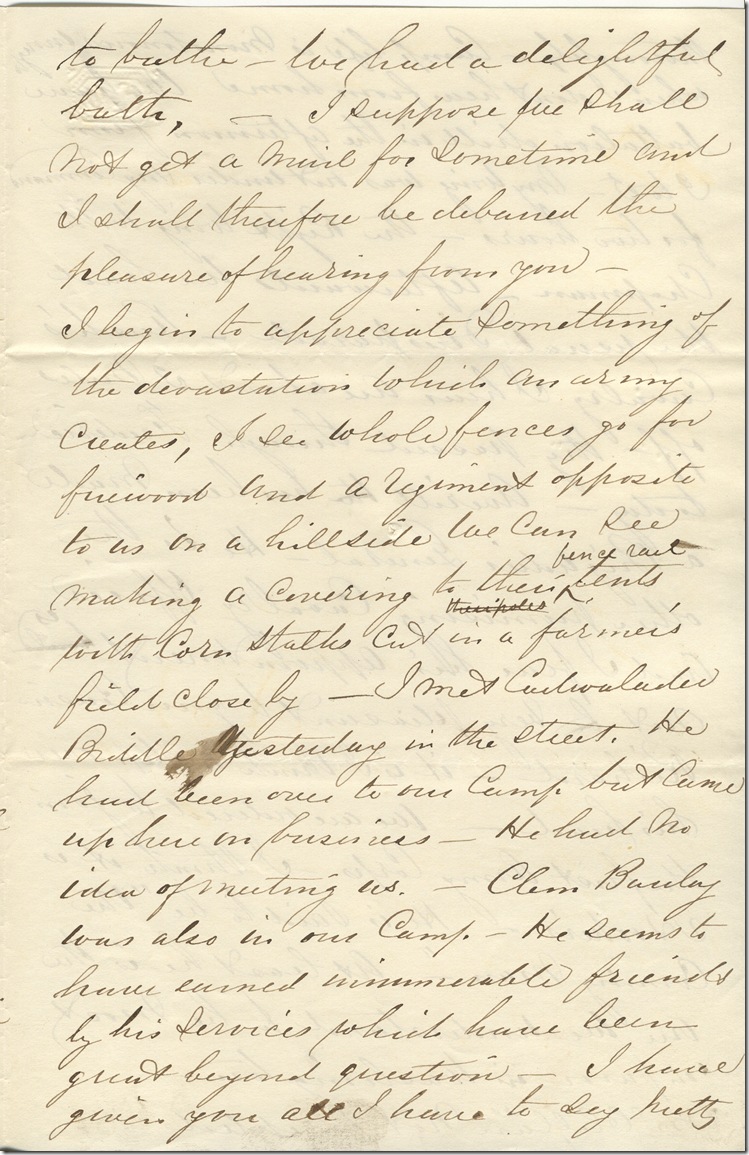 to bathe – We had a delightful
bath, – I suppose we shall
not get a mail for sometime and
I shall therefore be debarred the
pleasure of hearing from you –
I begin to appreciate something of
the devastation which an army
creates, I see whole fences go for
firewood and a regiment opposite
to us on a hillside we can see
fence rail
making a covering to their tents
their poles
with Corn stalks cut in a farmer's
field close by – I met Cadwalader
Biddle yesterday in the street. He
had been over to our Camp but came
up here on business – He had no
idea of meeting us. – Clem Barclay
was also in our Camp – He seems to
have earned innumerable friends
by his services which have been
great beyond question – I have
given you all I have to say